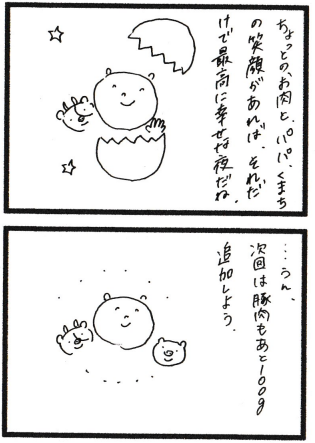 ちょっとの、お肉と、パパ、くまち
の笑顔があれば、それだ
けで最高に幸せな夜だね。
…うん、
次回は豚肉もあと100g
追加しよう。